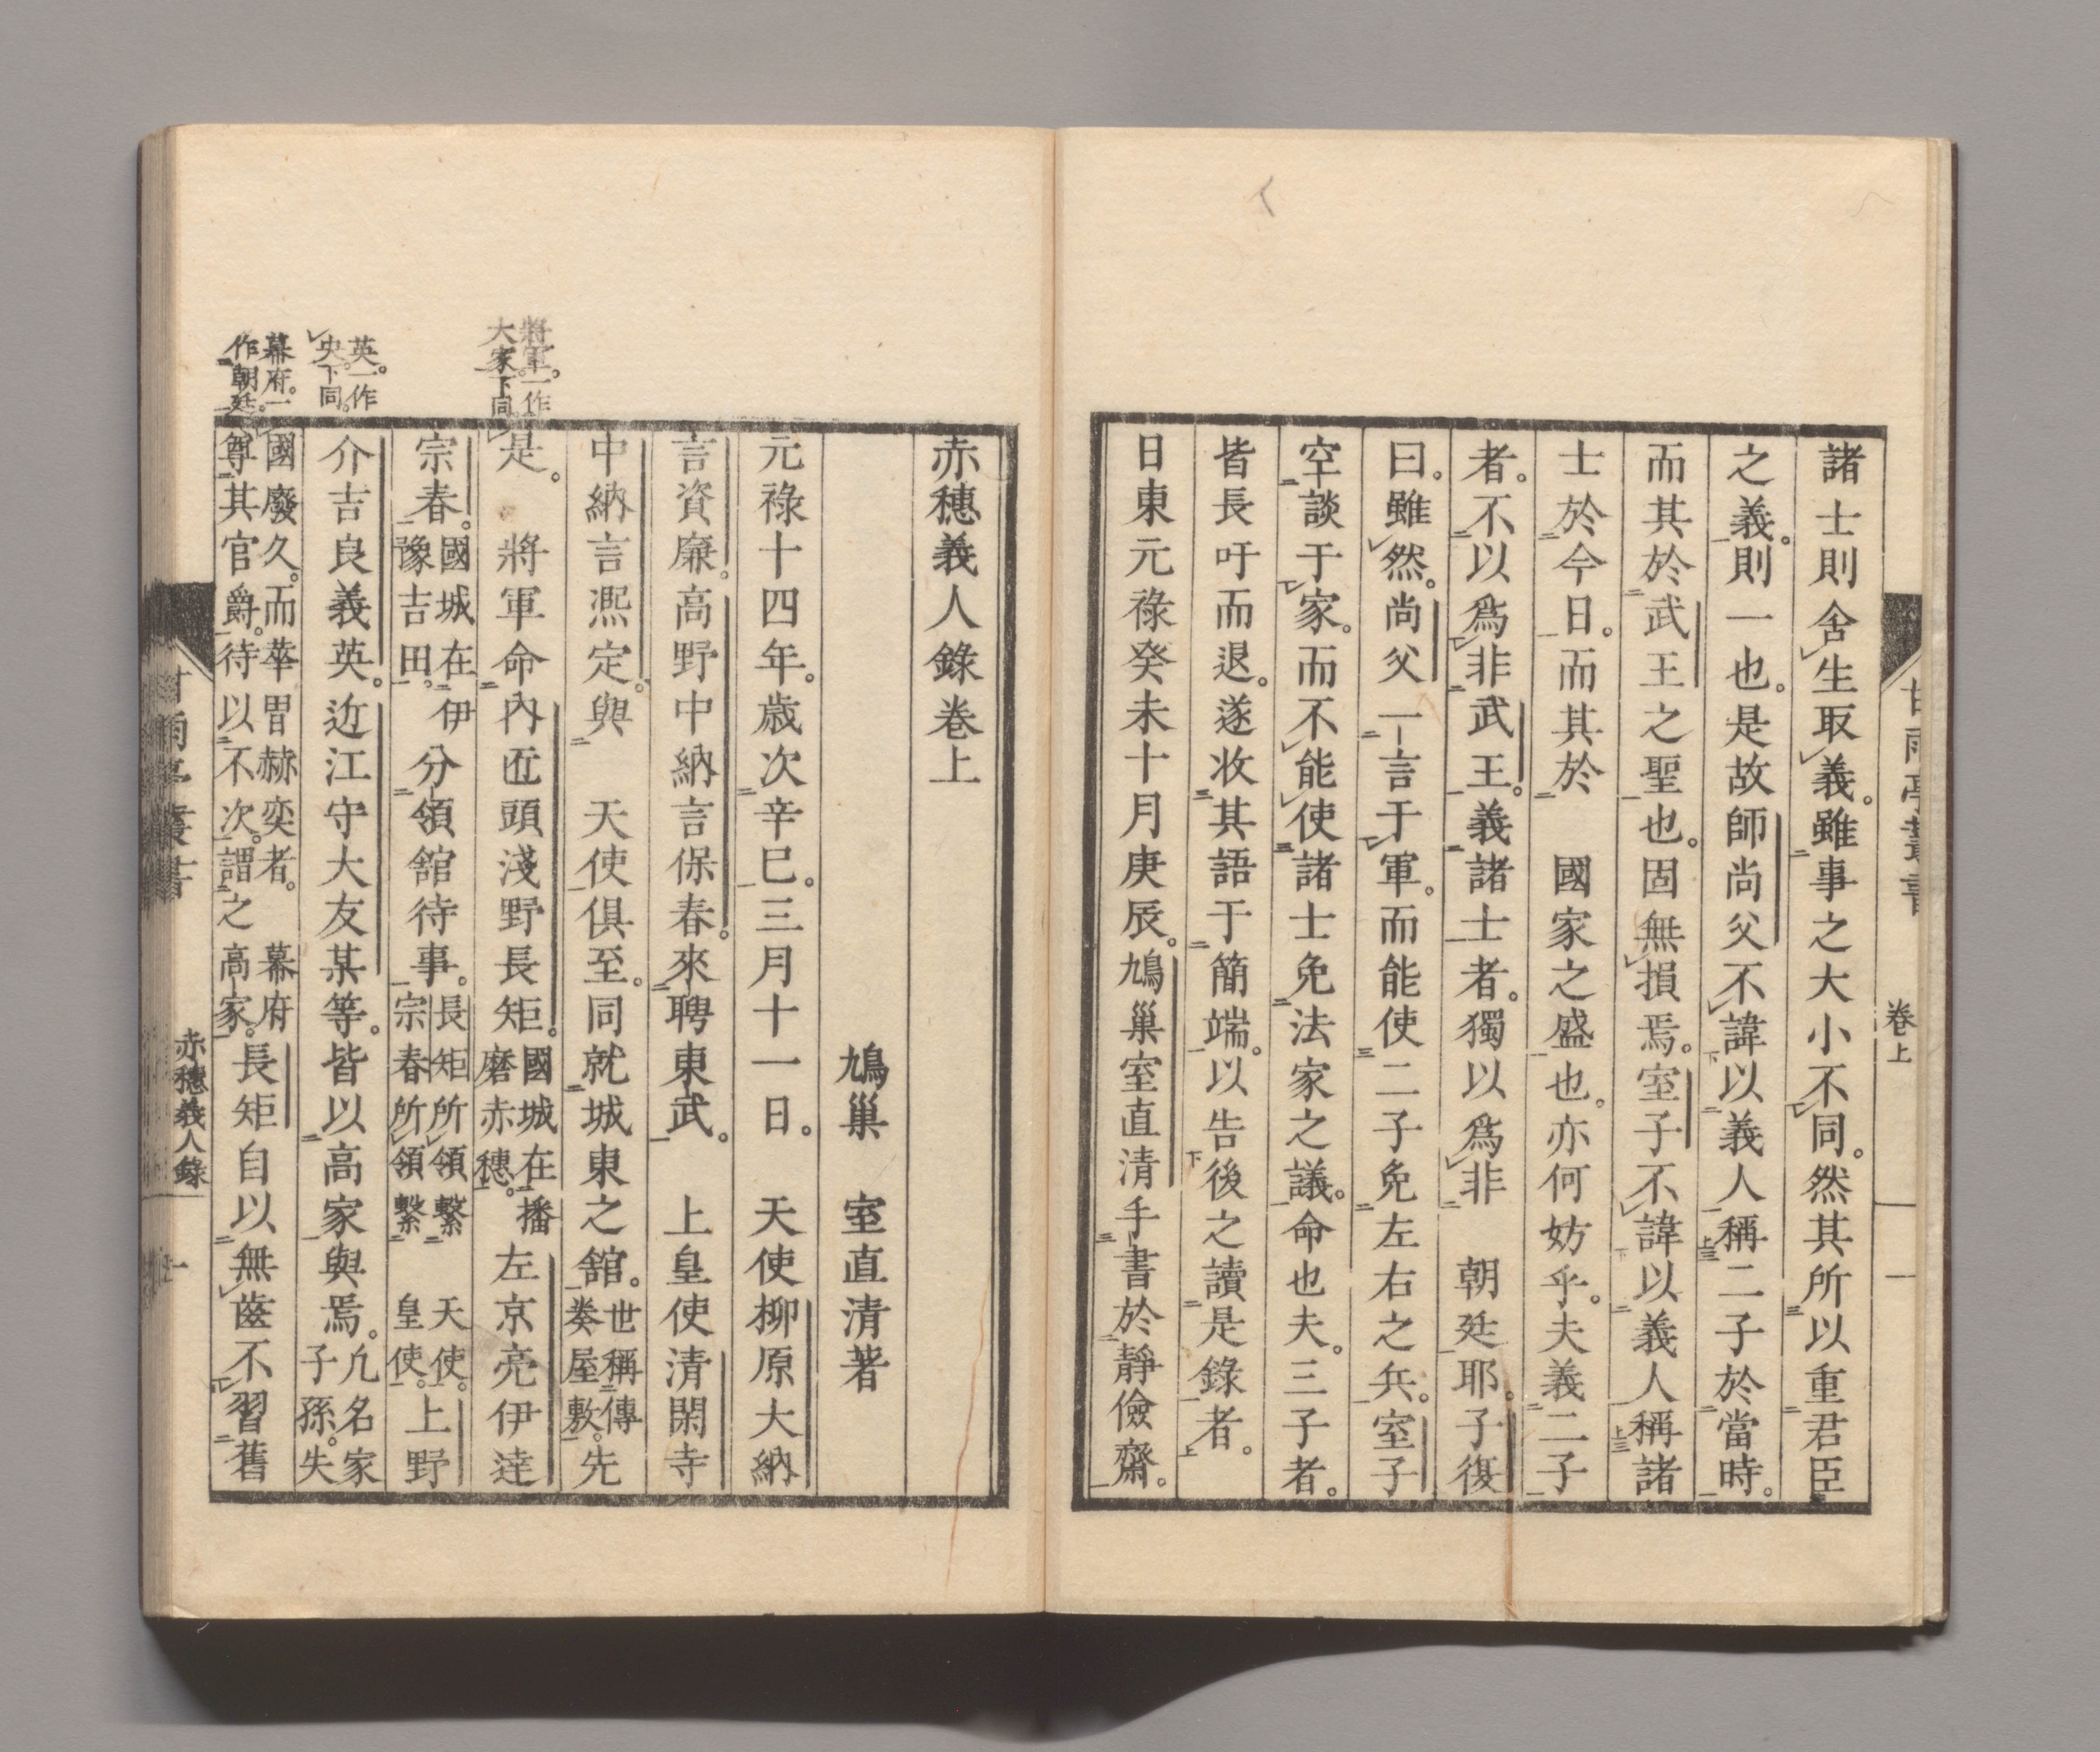 諸士則舍生取義。雖事之大小不同。然其所以重君臣
之義。則一也。是故師尚父不諱以義人稱二子於當時。
而其於武王之聖也。固無損焉。室子不諱以義人稱諸
士於今日。而其於　國家之盛也。亦何妨乎。夫義二子
者。不以爲非武王。義諸士者。獨以爲非　朝廷耶。子復
曰。雖然。尚父一言于軍。而能使二子免左右之兵。室子
空談于家。而不能使諸士免法家之議。命也夫。三子者。
皆長吁而退。遂收其語于簡端。以告後之讀是錄者。
日東元祿癸未十月庚辰。鳩巢室直清手書於靜儉齋。
甘雨亭叢書　卷上　一
赤穗義人錄卷上
鳩巢　室直清著
元祿十四年。歲次辛巳。三月十一日。　天使柳原大納
言資廉。高野中納言保春。來聘東武。　上皇使清閑寺
中納言熈定。與　天使俱至。同就城東之舘。世稱傳奏屋敷。先
是。　將軍命內匠頭淺野長矩。國城在播磨赤穗。左京亮伊達
宗春。國城在伊豫吉田。分領舘待事。長矩所領繫天使。宗春所領繫皇使。上野
介吉良義英。近江守大友某等。皆以高家與焉。凢名家子孫。失
國廢久。而華胄赫奕者。幕府尊其官爵。待以不次。謂之高家。長矩自以無齒不習舊
將軍。一作大家。下同。
英。一作央。下同。
幕府。一作朝廷。
甘雨亭叢書　赤穗義人錄　上